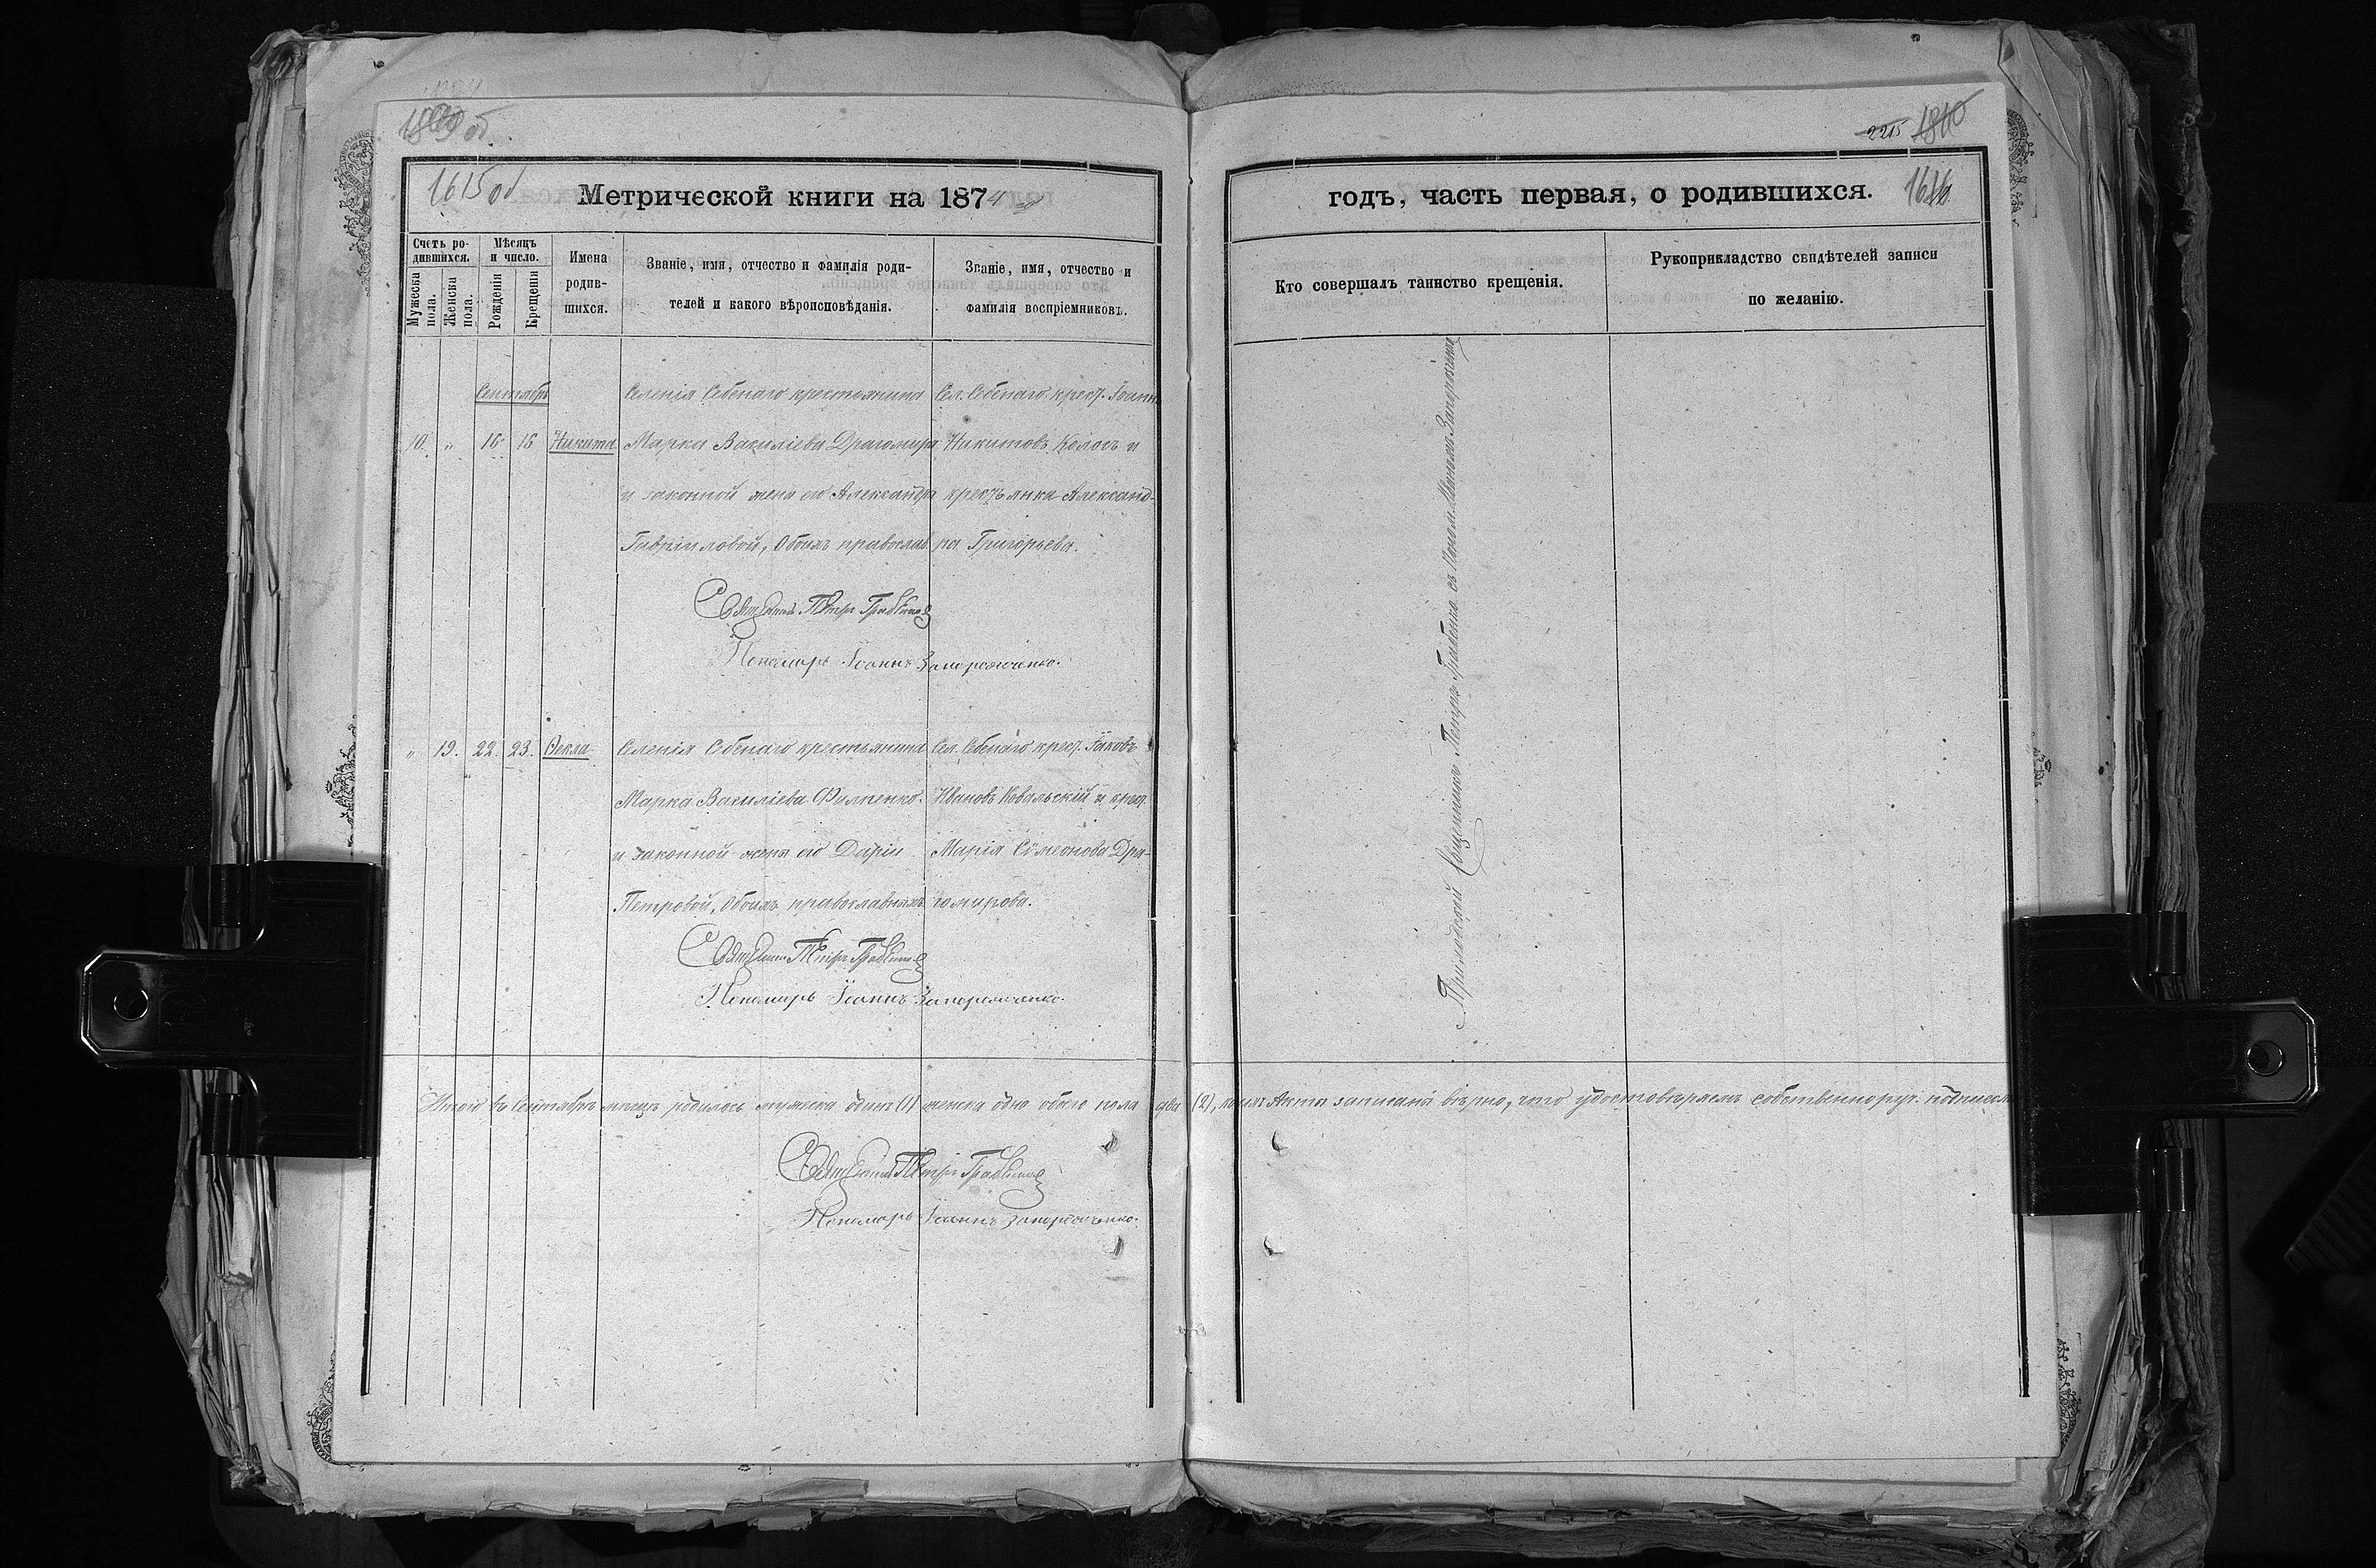 1615 об
Метрической книги на 1874
годъ, часть первая, о родившихся.
2215
1616
Счетъ ро-
дившихся.
Мужеска пола.
Женска пола.
Мѣсяцъ
и число.
Рожденія
Крещенія
Имена
родив-
шихся.
Званіе, имя, отчество и фамилія роди-
телей и какого вѣроисповѣданія.
Званіе, имя, отчество и
фамилія воспріемниковъ.
Кто совершалъ таинство крещенія.
Рукоприкладство свидѣтелей записи
по желанію.
Сентябрь
10. " 16 16 Никита
Селенія Себенаго крестьянина
Марка Василіева Драгомира
и законной жены его Александры
Гавріиловой, Обоихъ православ.
Сел. Себенаго крест. Іоаннъ
Никитовъ Колосъ и
крестьянка Александ-
ра Григорьева.
Священникъ Петръ Грабенко
Пономарь Іоаннъ Запорожченко.
" 19. 22. 23. Ѳекла
Селенія Себенаго крестьянина
Марка Василіева Филпенко
и законной жены его Даріи
Петровой, Обоихъ православныхъ
Сел. Себенаго крест. Іаковъ
Ивановъ Ковальскій и крест.
Марія Симеонова Дра-
гомирова.
Священникъ Петръ Грабенко
Пономарь Іоаннъ Запорожченко.
Приходскій Священникъ Петръ Грабенко съ Поном. Іоанномъ Запорожченко
Итого въ Сентябрѣ мѣсяцѣ родилось мужеска одинъ (1) женска одна обоего пола два (2), коихъ Акты записаны вѣрно, что удостовѣряемъ собственноруч. подписом
Священникъ Петръ Грабенко
Пономарь Іоаннъ Запорожченко.